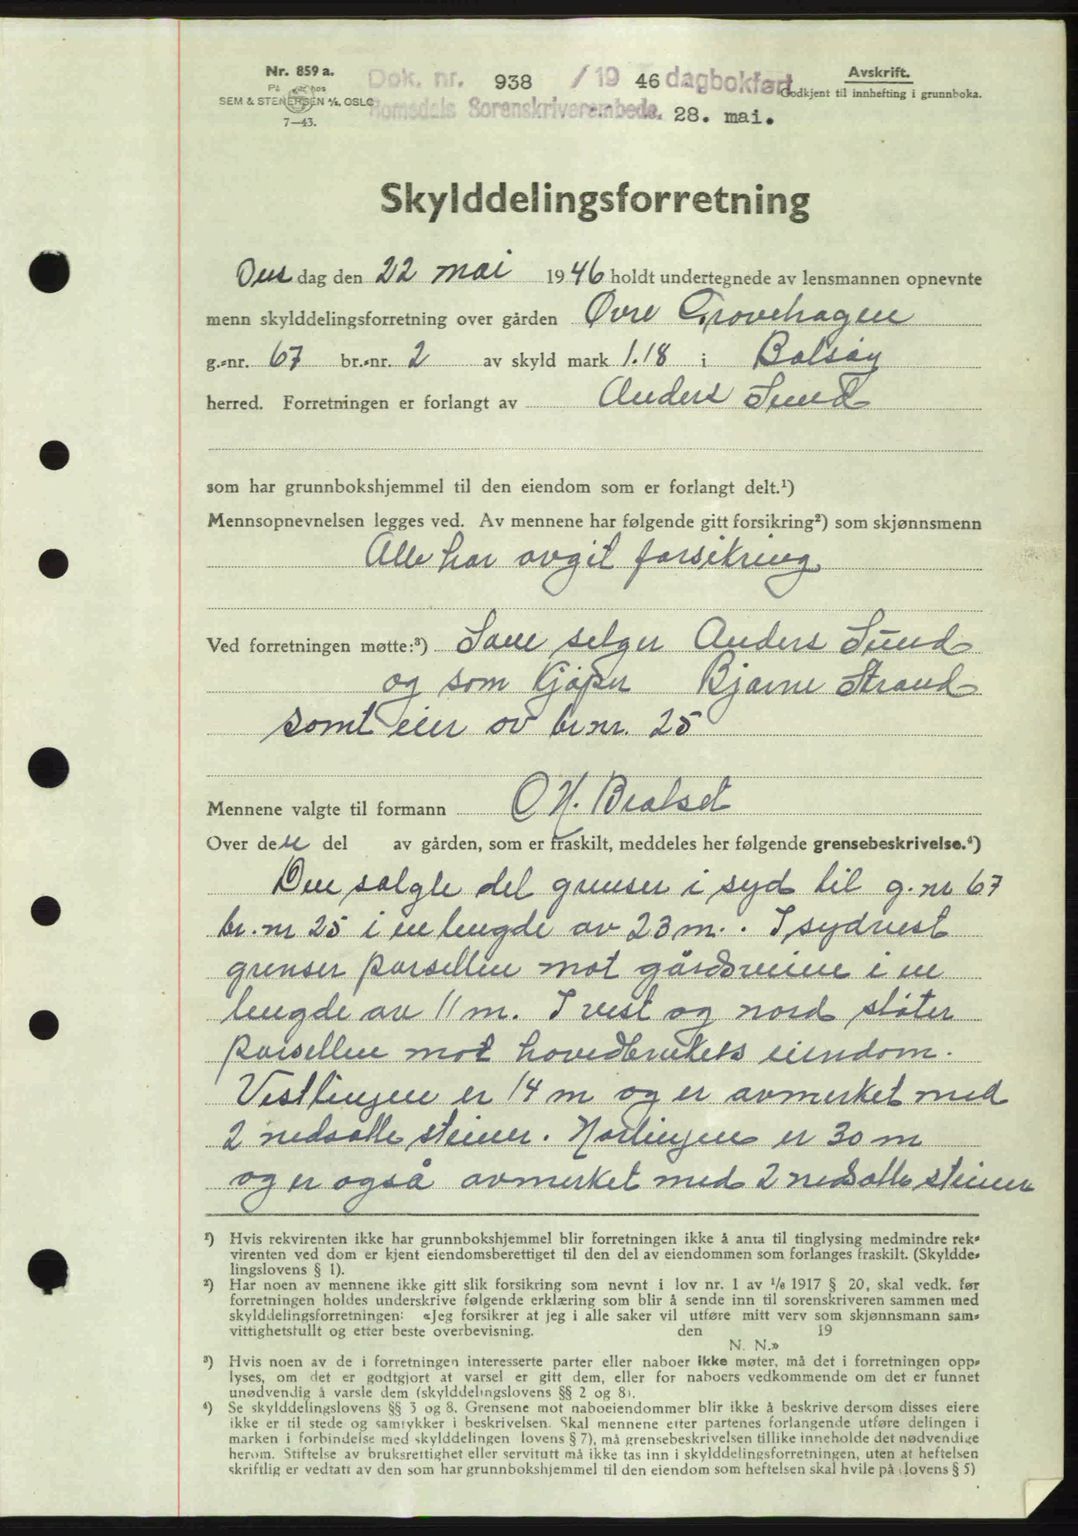 Nr. 859 a.
SEM & STENERSEN A/S, OSLO
7—43.
Dok. nr. 938 /19 46 dagbokført
Romsdals Sorenskriverembede. 28. mai.
Avskrift.
Godkjent til innhefting i grunnboka.
Skylddelingsforretning
Ons dag den 22 mai 1946 holdt undertegnede av lensmannen opnevnte
menn skylddelingsforretning over gården Øvre Grovehagen
g.-nr. 67 br.-nr. 2 av skyld mark 1.18 i Bolsøy
herred. Forretningen er forlangt av Anders Sund
som har grunnbokshjemmel til den eiendom som er forlangt delt.¹)
Mennsopnevnelsen legges ved. Av mennene har følgende gitt forsikring²) som skjønnsmenn
Alle har avgit forsikring
Ved forretningen møtte:³) Som selger Anders Sund
og som Kjøper Bjarne Strand
samt eier av br.nr. 25
Mennene valgte til formann O H.
Over den del av gården, som er fraskilt, meddeles her følgende grensebeskrivelse.⁴)
Den solgte del grenser i syd til g.nr 67
br.nr 25 i en lengde av 23 m. I sydvest
grenser parsellen mot gårdsveien i en
lengde av 11 m. I vest og nord støter
parsellen mot hovedbrukets eiendom.
Vestlinjen er 14 m og er avmerket med
2 nedsatte steiner. Norlinjen er 30 m
og er også avmerket med 2 nedsatte steiner
¹) Hvis rekvirenten ikke har grunnbokshjemmel blir forretningen ikke å anta til tinglysing medmindre rek-
virenten ved dom er kjent eiendomsberettiget til den del av eiendommen som forlanges fraskilt. (Skyldde-
lingslovens § 1).
²) Har noen av mennene ikke gitt slik forsikring som nevnt i lov nr. 1 av 1/6 1917 § 20, skal vedk. før
forretningen holdes underskrive følgende erklæring som blir å sende inn til sorenskriveren sammen med
skylddelingsforretningen: «Jeg forsikrer at jeg i alle saker vil utføre mitt verv som skjønnsmann sam-
vittighetsfullt og etter beste overbevisning. den 19
N. N.»
³) Hvis noen av de i forretningen interesserte parter eller naboer ikke møter, må det i forretningen opp-
lyses, om det er godtgjort at varsel er gitt dem, eller for naboers vedkommende om det er funnet
unødvendig å varsle dem (skylddelingslovens §§ 2 og 8).
⁴) Se skylddelingslovens §§ 3 og 8. Grensene mot naboeiendommer blir ikke å beskrive dersom disses eiere
ikke er til stede og samtykker i beskrivelsen. Skal mennene etter partenes forlangende utføre delingen i
marken i forbindelse med skylddelingen (lovens § 7), må grensebeskrivelsen tillike inneholde det nødvendige
herom. Stiftelse av bruksrettighet eller servitutt må ikke tas inn i skylddelingsforretningen, uten at heftelsen
skriftlig er vedtatt av den som har grunnbokshjemmel til den eiendom som heftelsen skal hvile på (lovens § 5)